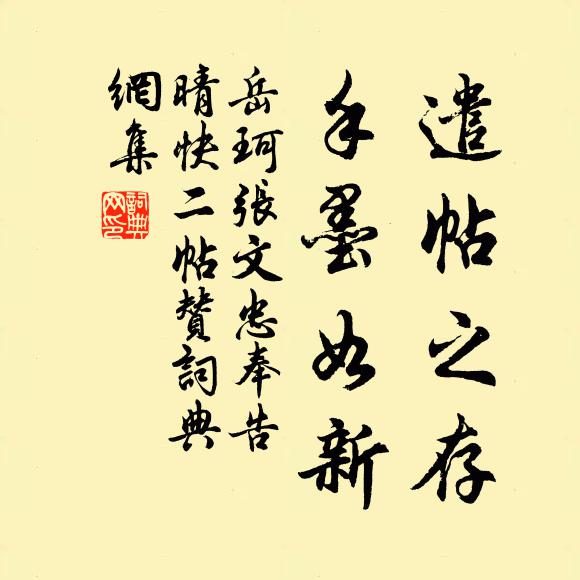 遺帖之存
手墨如新
岳珂張文忠奉告
晴快二帖贊詞典
網集
詞典
网印